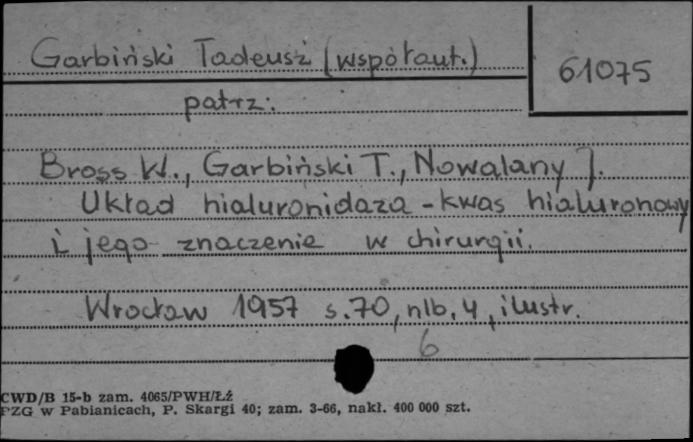 Garbiński Tadeusz (współaut.)
61075
patrz:
Bross W., Garbiński T., Nowalany J.
Układ hialuronidaza - kwas hialuronowy
i jego znaczenie w chirurgii.
Wrocław 1957 s.70, nlb. 4, ilustr.
6
CWD/B 15-b zam. 4065/PWH/Łź
PZG w Pabianicach, P. Skargi 40; zam. 3-66, nakł. 400 000 szt.